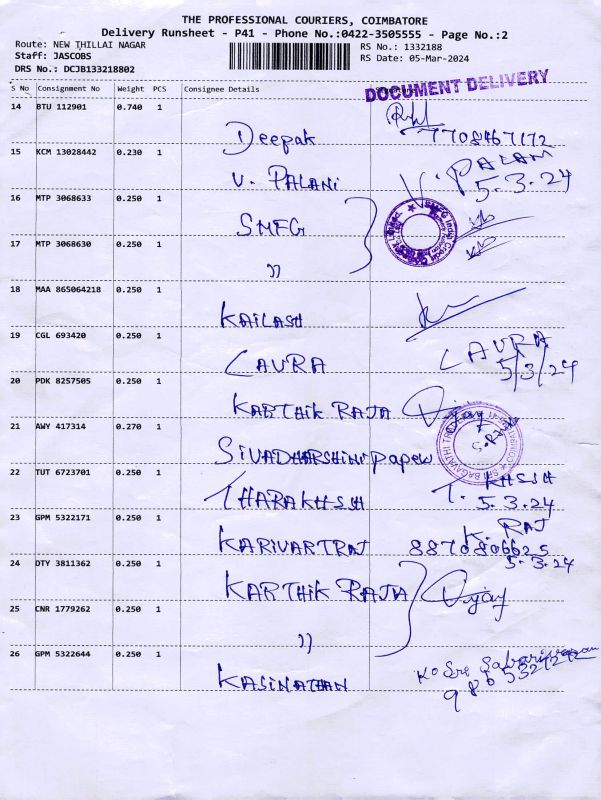 THE PROFESSIONAL COURIERS, COIMBATORE
Delivery Runsheet - P41 - Phone No.:0422-3505555 - Page No.:2
Route: NEW THILLAI NAGAR
RS No.: 1332188
Staff: JASCOBS
RS Date: 05-Mar-2024
DRS No.: DCJB133218802
DOCUMENT DELIVERY
S No Consignment No Weight PCS Consignee Details
14 BTU 112901 0.740 1
Deepak 7708467172
15 KCM 13028442 0.230 1
V. PALANi V. PALANI
5.3.24
16 MTP 3068633 0.250 1
SMFG
17 MTP 3068630 0.250 1
"
18 MAA 865064218 0.250 1
KAiLASH
19 CGL 693420 0.250 1
LAURA LAURA
5/3/24
20 PDK 8257505 0.250 1
KARTHiK RAJA Vijay
21 AWY 417314 0.270 1
SIVADHARSHINI papew
22 TUT 6723701 0.250 1
THARAKHSH T. KHSSH
5.3.24
23 GPM 5322171 0.250 1
K. RAJ
KARIVARTRAJ 8870806625
5.3.24
24 DTY 3811362 0.250 1
KARTHiK RAJA Vijay
25 CNR 1779262 0.250 1
"
26 GPM 5322644 0.250 1
KASiNATHAN